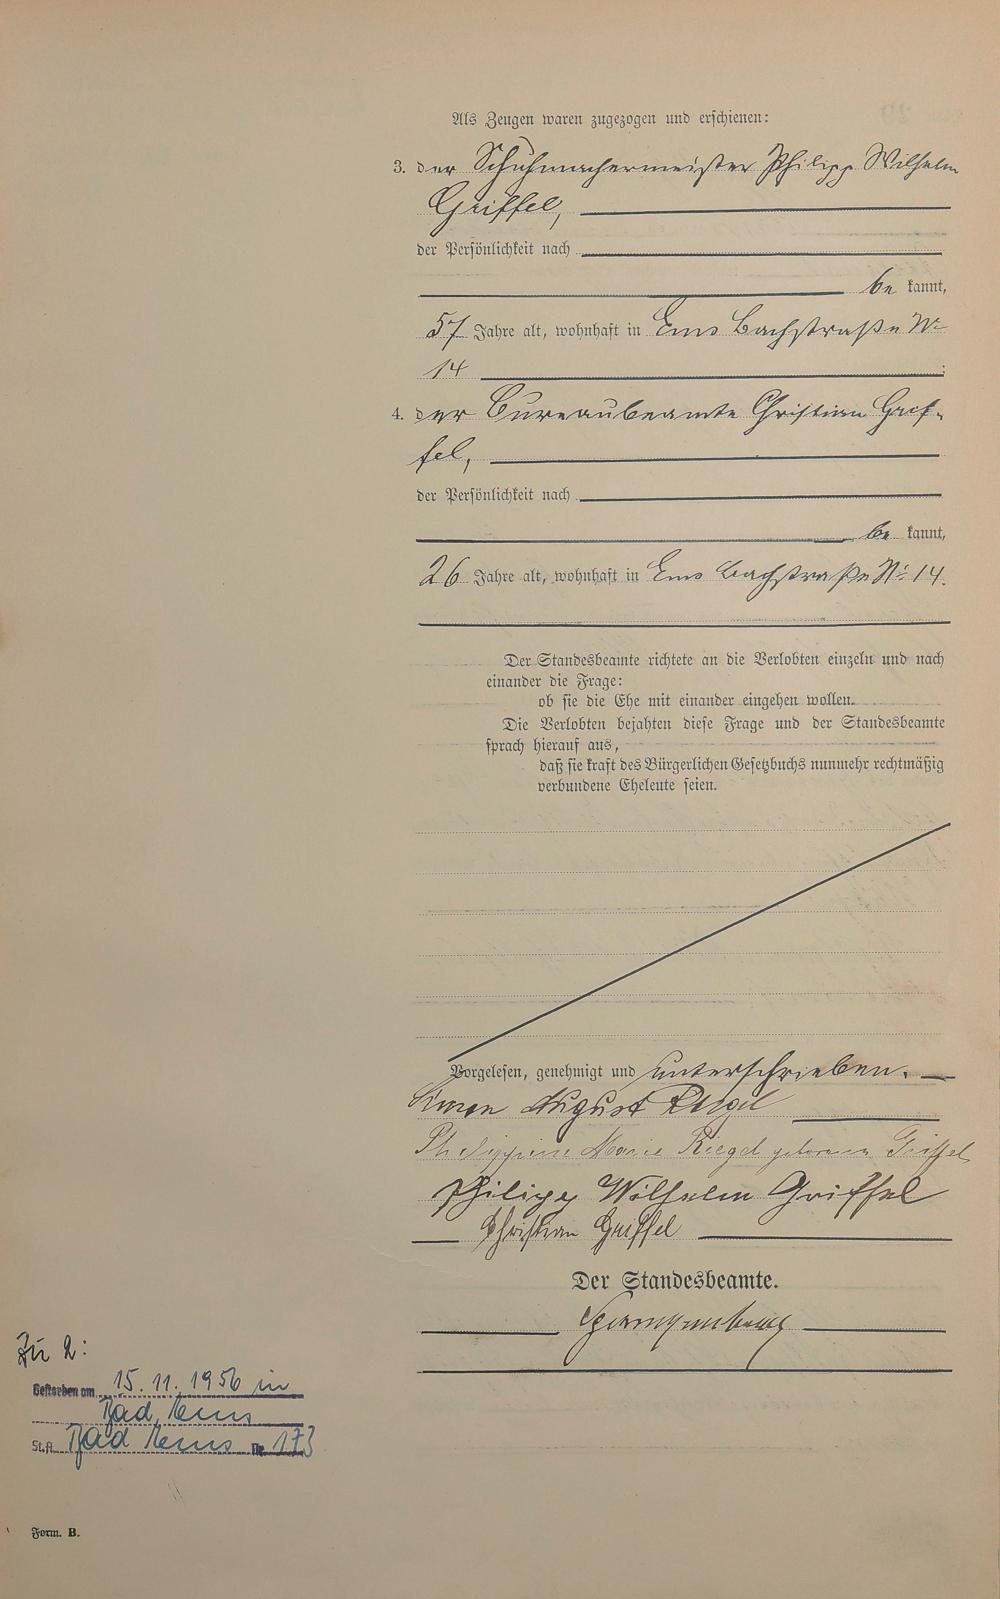 Als Zeugen waren zugezogen und erschienen:
3. der Schuhmachermeister Philipp Wilhelm
Griffel,
der Persönlichkeit nach
be kannt,
57 Jahre alt, wohnhaft in Ems Bachstraße No
14 ;
4. der Bureaubeamte Christian Grif-
fel,
der Persönlichkeit nach
be kannt,
26 Jahre alt, wohnhaft in Ems Bachstraße No 14.
Der Standesbeamte richtete an die Verlobten einzeln und nach
einander die Frage:
ob sie die Ehe mit einander eingehen wollen.
Die Verlobten bejahten diese Frage und der Standesbeamte
sprach hierauf aus,
daß sie kraft des Bürgerlichen Gesetzbuchs nunmehr rechtmäßig
verbundene Eheleute seien.
Vorgelesen, genehmigt und unterschrieben.
Simon August Riegel
Philippine Marie Riegel geborene Griffel
Philipp Wilhelm Griffel
Christian Griffel
Der Standesbeamte.
Zu 2:
Gestorben am 15. 11. 1956 in
Bad Ems
St.A. Bad Ems Nr. 173
Form. B.